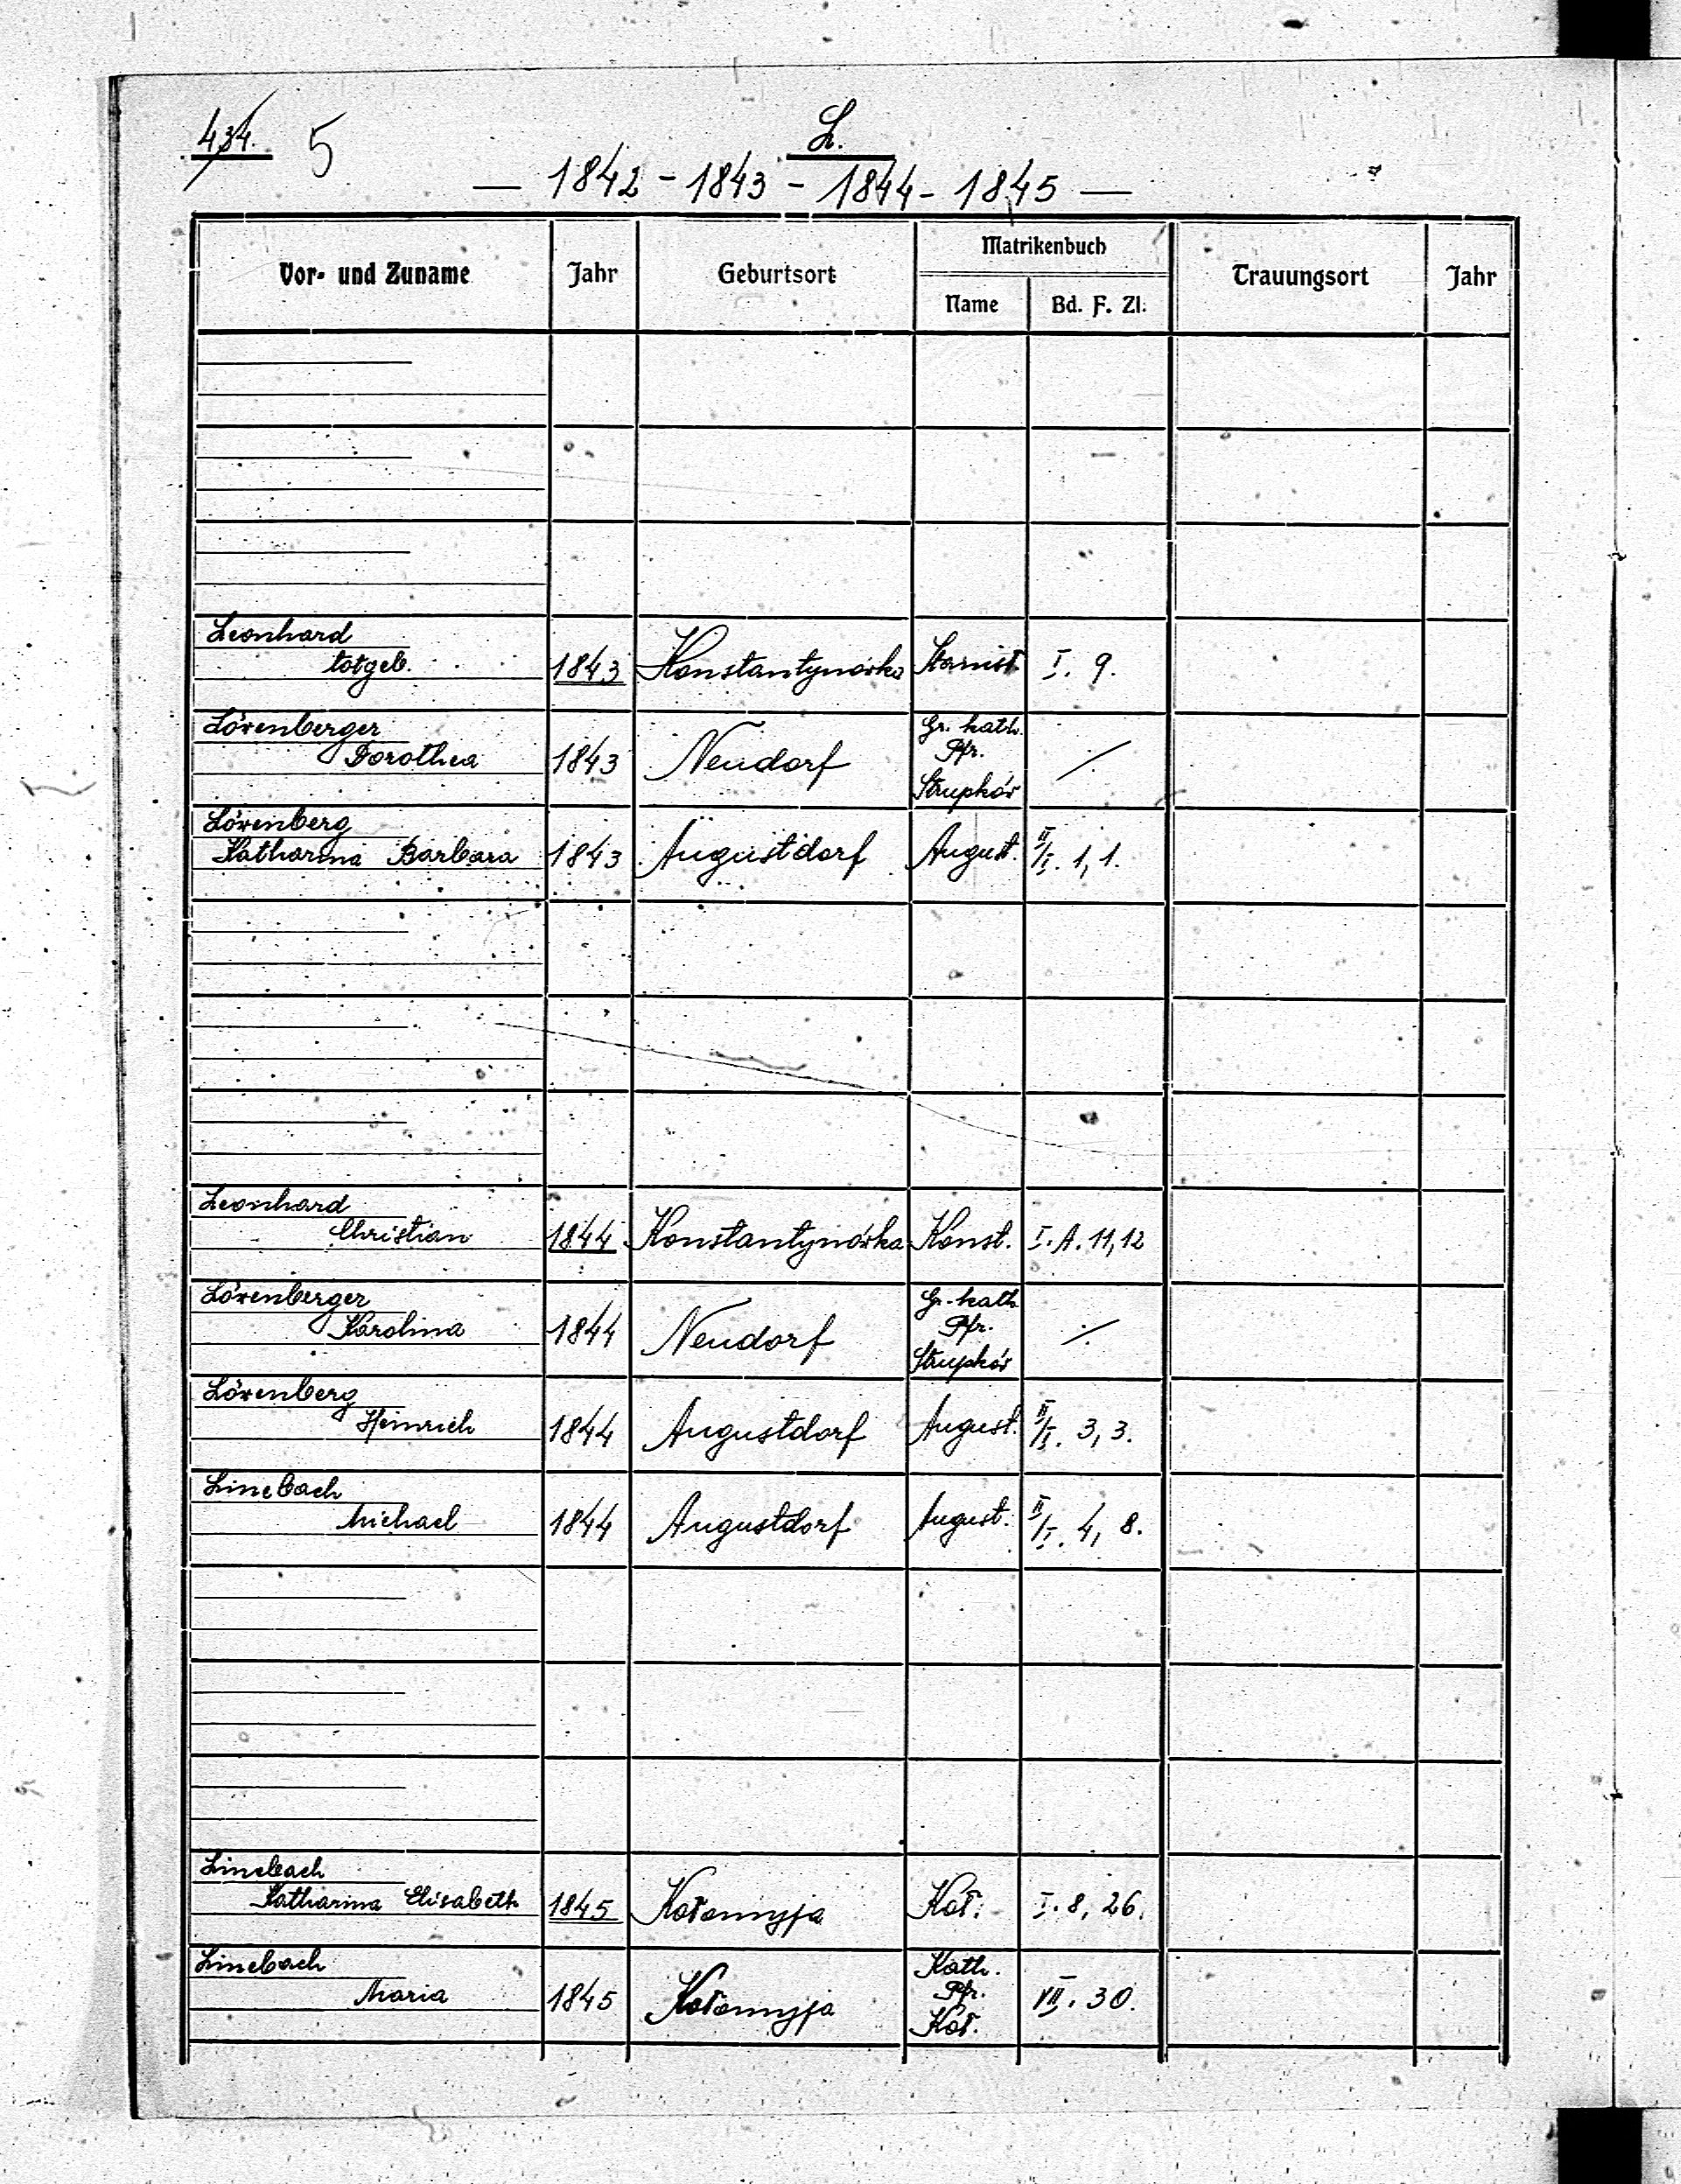 434. 5
L.
— 1842 - 1843 - 1844 - 1845 —
Vor- und Zuname Jahr Geburtsort Matrikenbuch Trauungsort Jahr
Name Bd. F. Zl.
Leonhard
totgeb. 1843 Konstantynówka Stanisł. I. 9.
Lövenberger
Dorothea 1843 Neudorf Gr. kath. Pfr. Strupków ⁒
Lövenberg
Katharina Barbara 1843 Augustdorf August. II/I. 1, 1.
Leonhard
Christian 1844 Konstantynówka Konst. I. A. 11, 12
Lövenberger
Karolina 1844 Neudorf Gr.-kath. Pfr. Strupków ⁒
Lövenberg
Heinrich 1844 Augustdorf August. II/I. 3, 3.
Linebach
Michael 1844 Augustdorf August. II/I. 4, 8.
Linebach
Katharina Elisabeth 1845 Kołomyja Koł. I. 8, 26.
Linebach
Maria 1845 Kołomyja Kath. Pfr. Koł. VII. 30.